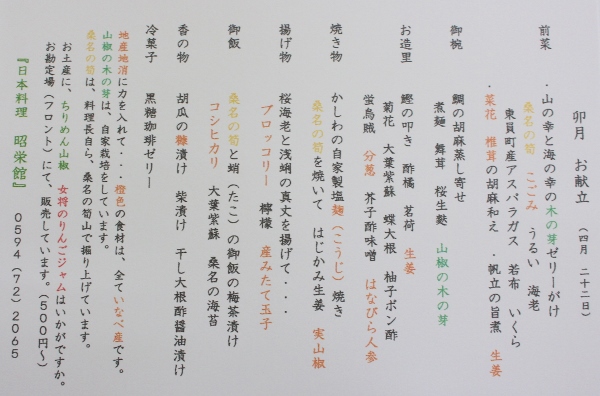 卯月　お献立　（四月　二十二日）
前菜　・山の幸と海の幸の木の芽ゼリーがけ
桑名の筍　こごみ　うるい　海老
東員町産アスパラガス　若布　いくら
・菜花　椎茸の胡麻和え　・帆立の旨煮　生姜
御椀　鯛の胡麻蒸し寄せ
煮麺　舞茸　桜生麩　山椒の木の芽
お造里　鰹の叩き　酢橘　茗荷　生姜
菊花　大葉紫蘇　蝶大根　柚子ポン酢
蛍烏賊　分葱　芥子酢味噌　はなびら人参
焼き物　かしわの自家製塩麹（こうじ）焼き
桑名の筍を焼いて　はじかみ生姜　実山椒
揚げ物　桜海老と浅蜊の真丈を揚げて・・・
ブロッコリー　檸檬　産みたて玉子
御飯　桑名の筍と蛸（たこ）の御飯の梅茶漬け
コシヒカリ　大葉紫蘇　桑名の海苔
香の物　胡瓜の糠漬け　柴漬け　干し大根酢醤油漬け
冷菓子　黒糖珈琲ゼリー
地産地消に力を入れて・・・橙色の食材は、全ていなべ産です。
山椒の木の芽は、自家栽培をしています。
桑名の筍は、料理長自ら、桑名の筍山で掘り上げています。
お土産に、ちりめん山椒　女将のりんごジャムはいかがですか。
お勘定場（フロント）にて、販売しています。（５００円～）
『日本料理　昭栄館』　０５９４（７２）２０６５